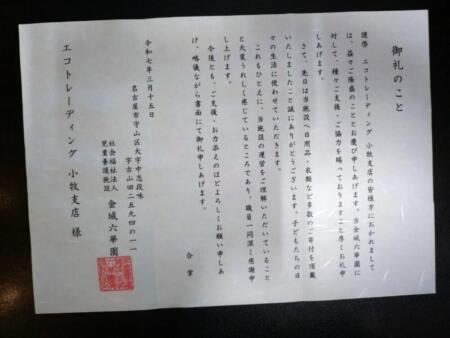 御礼のこと
謹啓 エコトレーディング 小牧支店の皆様方におかれまして
は、益々ご隆盛のこととお慶び申しあげます。当金城六華園に
対して、種々ご支援・ご協力を賜っておりますこと厚くお礼申
しあげます。
さて、先日は当施設へ日用品・衣類など多数のご寄付を頂戴
いたしましたこと誠にありがとうございます。子どもたちの日
々の生活に使わせていただきます。
これもひとえに、当施設の運営をご理解いただいていること
と大変うれしく感じているところであり、職員一同深く感謝申
し上げます。
今後とも、ご支援・お力添えのほどよろしくお願い申しあ
げ、略儀ながら書面にて御礼申しあげます。
合掌
令和七年三月十五日
名古屋市守山区大字中志段味
字古山田二五九四の一一
社会福祉法人
児童養護施設 金城六華園
エコトレーディング 小牧支店 様